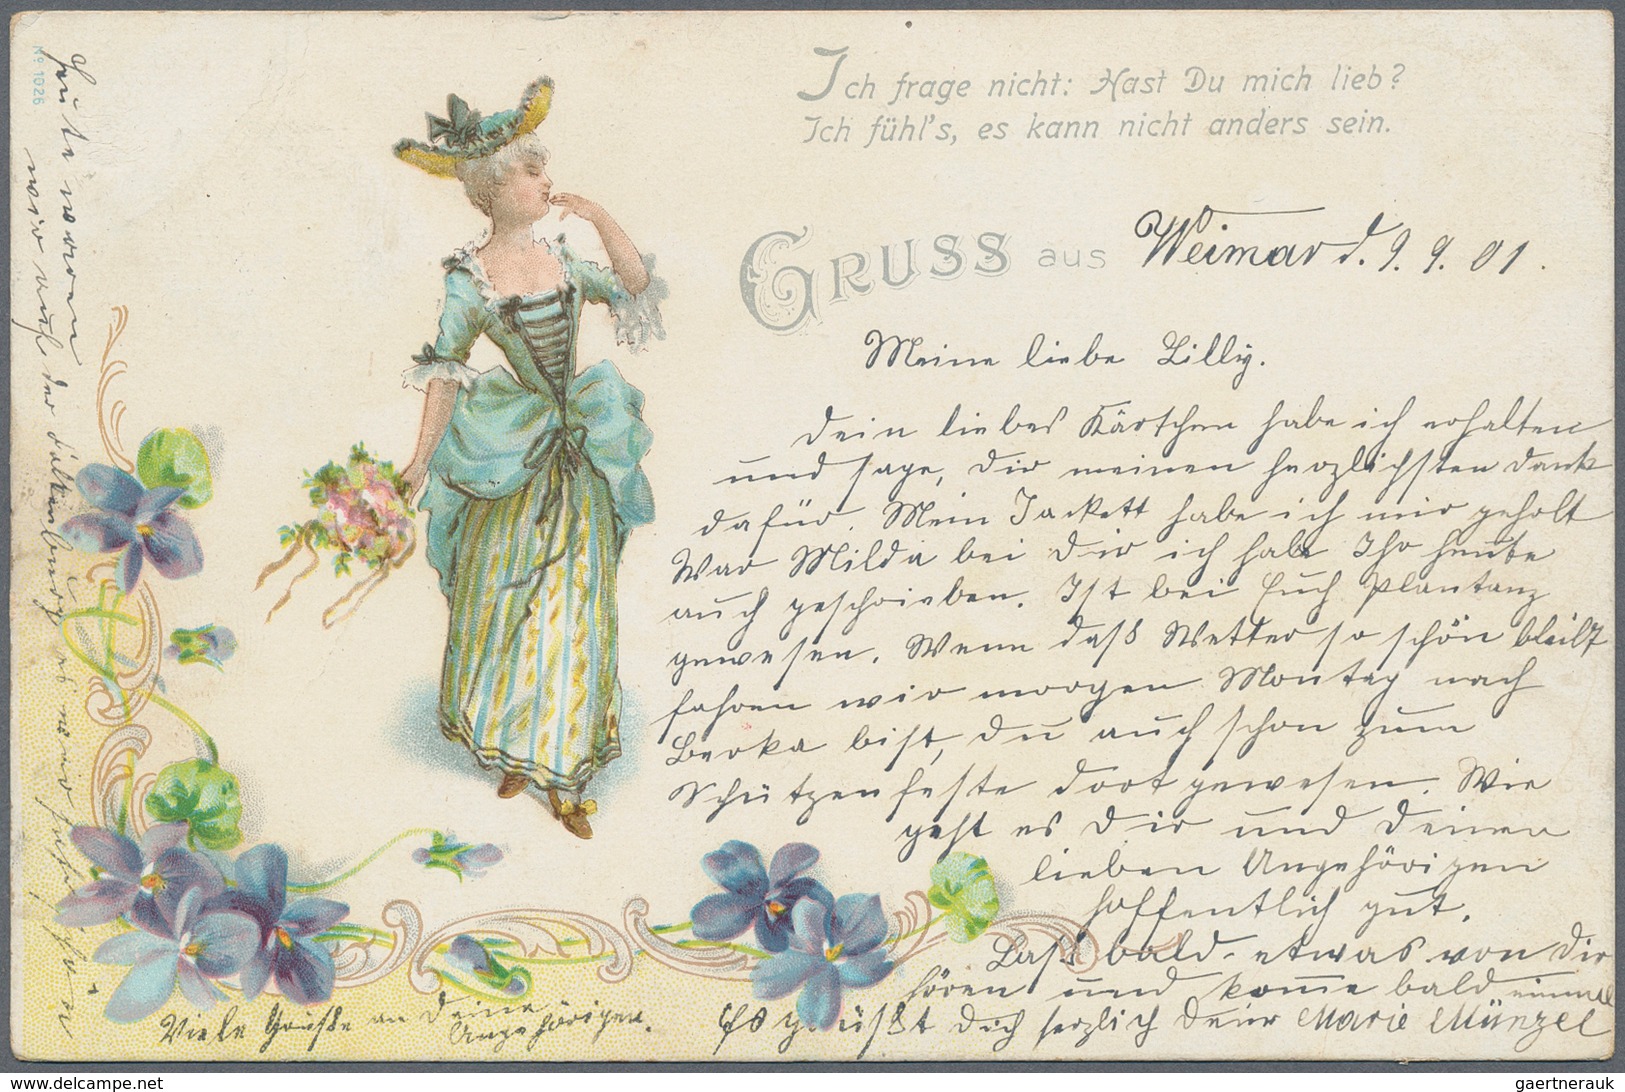 No 1026
Ich frage nicht: Hast Du mich lieb?
Ich fühl's, es kann nicht anders sein.
GRUSS aus Weimar d. 9. 9. 01.
Meine liebe Lilly.
Dein liebes Kärtchen habe ich erhalten
und sage, dir meinen herzlichsten Dank
dafür. Mein Jackett habe ich mir geholt
War Milda bei Dir ich habe Ihr heute
auch geschrieben. Ist bei Euch Plantanz
gewesen. Wenn daß Wetter so schön bleibt
fahren wir morgen Montag nach
Berka bist, du auch schon zum
Schützenfeste dort gewesen. Wie
geht es Dir und Deinen
lieben Angehörigen
hoffentlich gut.
Laß bald etwas von Dir
hören und komme bald einmal
Es grüßt Dich herzlich Deine Marie Münzel
Viele Grüße an Deine
Angehörigen.
Heute waren
wir auf der Altenburg es war sehr schön